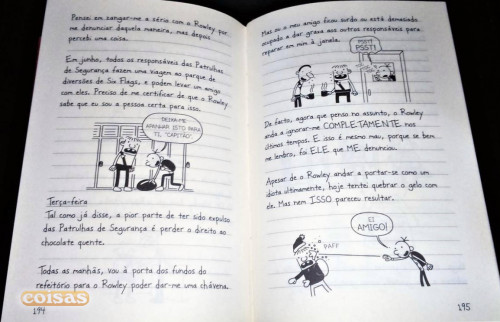 Pensei em zangar-me a sério com o Rowley por
me denunciar daquela maneira, mas depois
percebi uma coisa.
Em junho, todos os responsáveis das Patrulhas
de Segurança fazem uma viagem ao parque de
diversões de Six Flags, e podem levar um amigo
com eles. Preciso de me certificar de que o Rowley
sabe que eu sou a pessoa certa para isso.
DEIXA-ME
APANHAR ISTO PARA
TI, "CAPITÃO".
Terça-feira
Tal como já disse, a pior parte de ter sido expulso
das Patrulhas de Segurança é perder o direito ao
chocolate quente.
Todas as manhãs, vou à porta dos fundos do
refeitório para o Rowley poder dar-me uma chávena.
coisas
194
Mas ou o meu amigo ficou surdo ou está demasiado
ocupado a dar graxa aos outros responsáveis para
reparar em mim à janela.
PSST!
PSST!
De facto, agora que penso no assunto, o Rowley
anda a ignorar-me COMPLETAMENTE nos
últimos tempos. E isso é mesmo mau, porque se bem
me lembro, foi ELE que ME denunciou.
Apesar de o Rowley andar a portar-se como um
idiota ultimamente, hoje tentei quebrar o gelo com
ele. Mas nem ISSO pareceu resultar.
EI
AMIGO!
PAFF
195